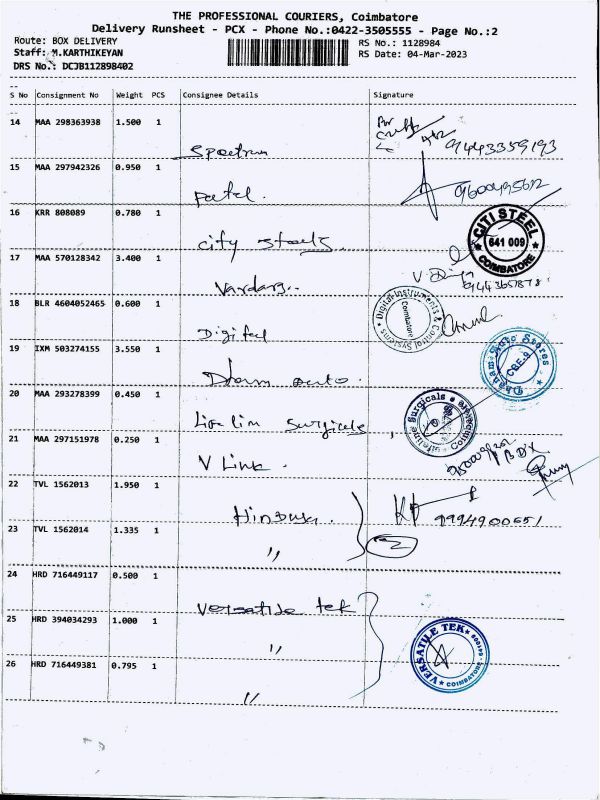 THE PROFESSIONAL COURIERS, Coimbatore
Delivery Runsheet - PCX - Phone No.:0422-3505555 - Page No.:2
Route: BOX DELIVERY RS No.: 1128984
Staff: M.KARTHIKEYAN RS Date: 04-Mar-2023
DRS No.: DCJB112898402
S No Consignment No Weight PCS Consignee Details Signature
14 MAA 298363938 1.500 1
Spectrum 9443359193
15 MAA 297942326 0.950 1
Patel. 9600495612
16 KRR 808089 0.780 1
City Steels. CITI STEEL 641 009 COIMBATORE
17 MAA 570128342 3.400 1
18 BLR 4604052465 0.600 1
Digital Digital Instruments & Control Systems Coimbatore
19 IXM 503274155 3.550 1
auto. Dhanam Auto Spares CBE-9
20 MAA 293278399 0.450 1
Surgicals Lifeline Surgicals
21 MAA 297151978 0.250 1
V Link.
22 TVL 1562013 1.950 1
9994900651
23 TVL 1562014 1.335 1
"
24 HRD 716449117 0.500 1
Versatile tek
25 HRD 394034293 1.000 1
" VERSATILE TEK COIMBATORE
26 HRD 716449381 0.795 1
"